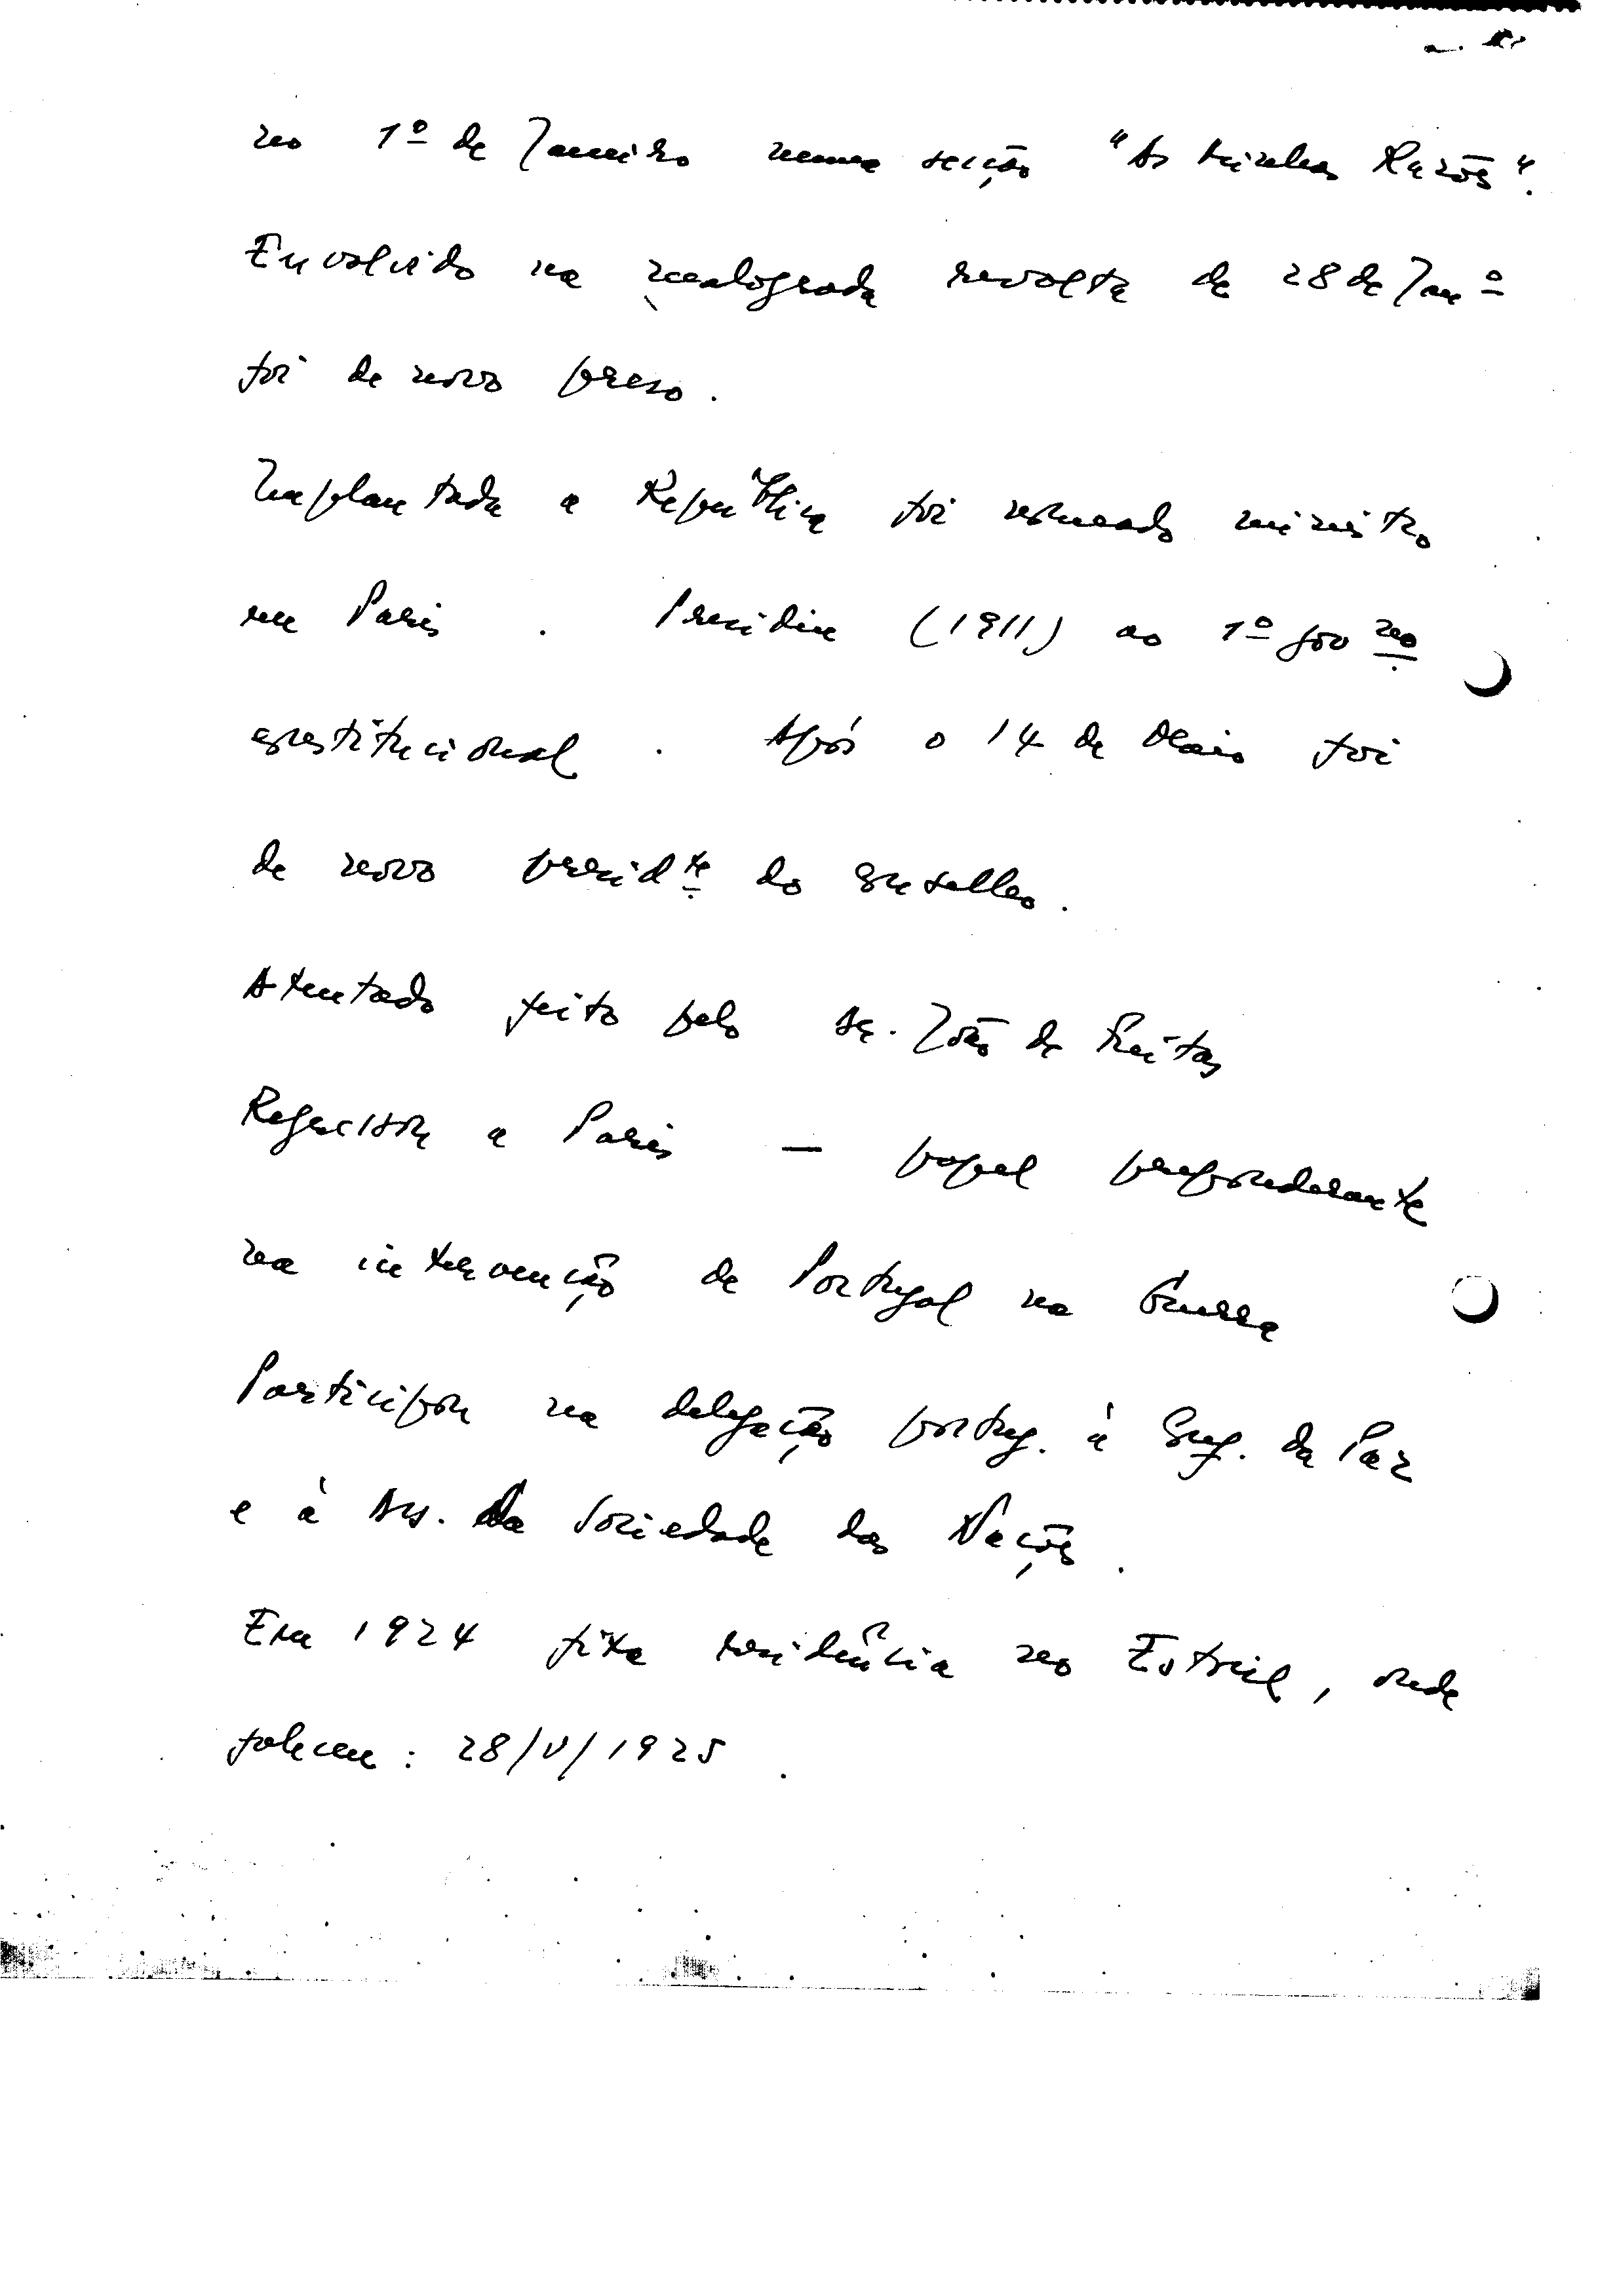 no 1º de Janeiro numa secção "As minhas Razões".
Envolvido na malograda revolta de 28 de Janº
foi de novo preso.
Implantada a República foi nomeado ministro
em Paris. Presidiu (1911) ao 1º govno
constitucional. Após o 14 de Maio foi
de novo presidte do conselho.
Atentado feito pelo sr. João de Freitas
Regressou a Paris — papel preponderante
na intervenção de Portugal na Guerra
Participou na delegação portug. à Conf. da Paz
e à Ass. da Sociedade das Nações.
Em 1924 fixa residência no Estoril, onde
faleceu: 28/V/1925.